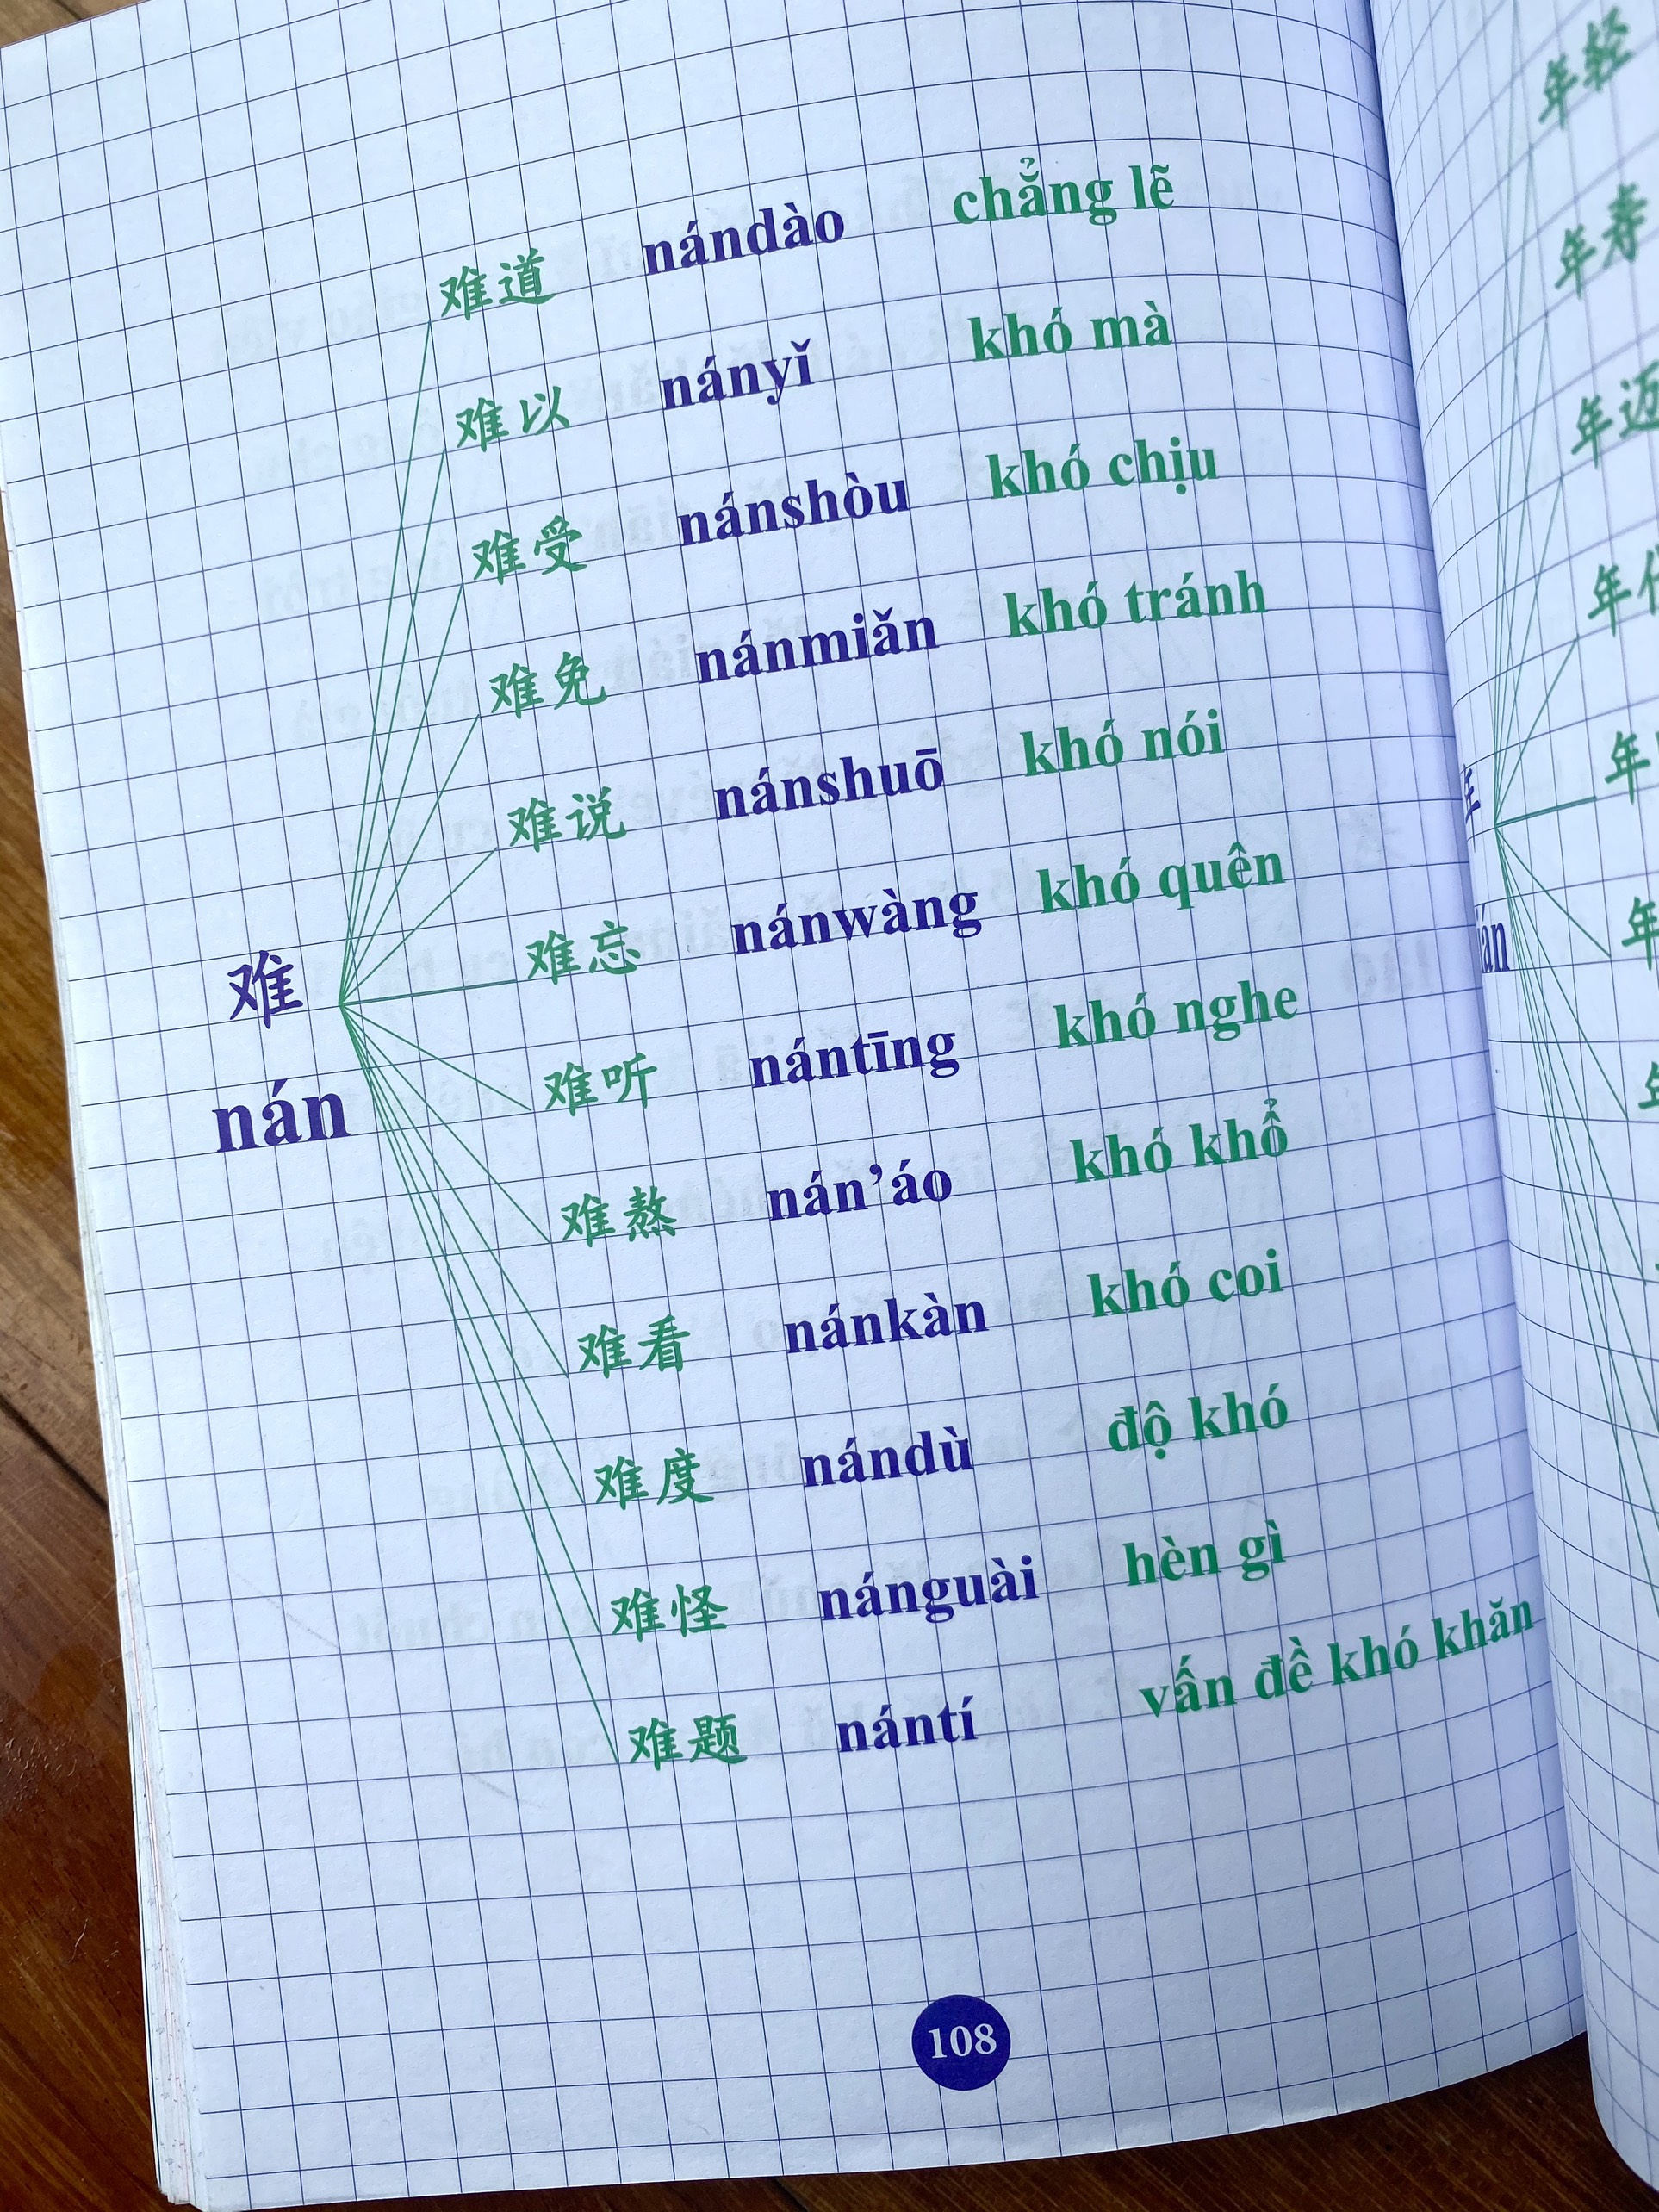 难道 nándào chẳng lẽ
难以 nányǐ khó mà
难受 nánshòu khó chịu
难免 nánmiǎn khó tránh
难说 nánshuō khó nói
难忘 nánwàng khó quên
难
nán
难听 nántīng khó nghe
难熬 nán’áo khó khổ
难看 nánkàn khó coi
难度 nándù độ khó
难怪 nánguài hèn gì
难题 nántí vấn đề khó khăn
108
年轻
年寿
年迈